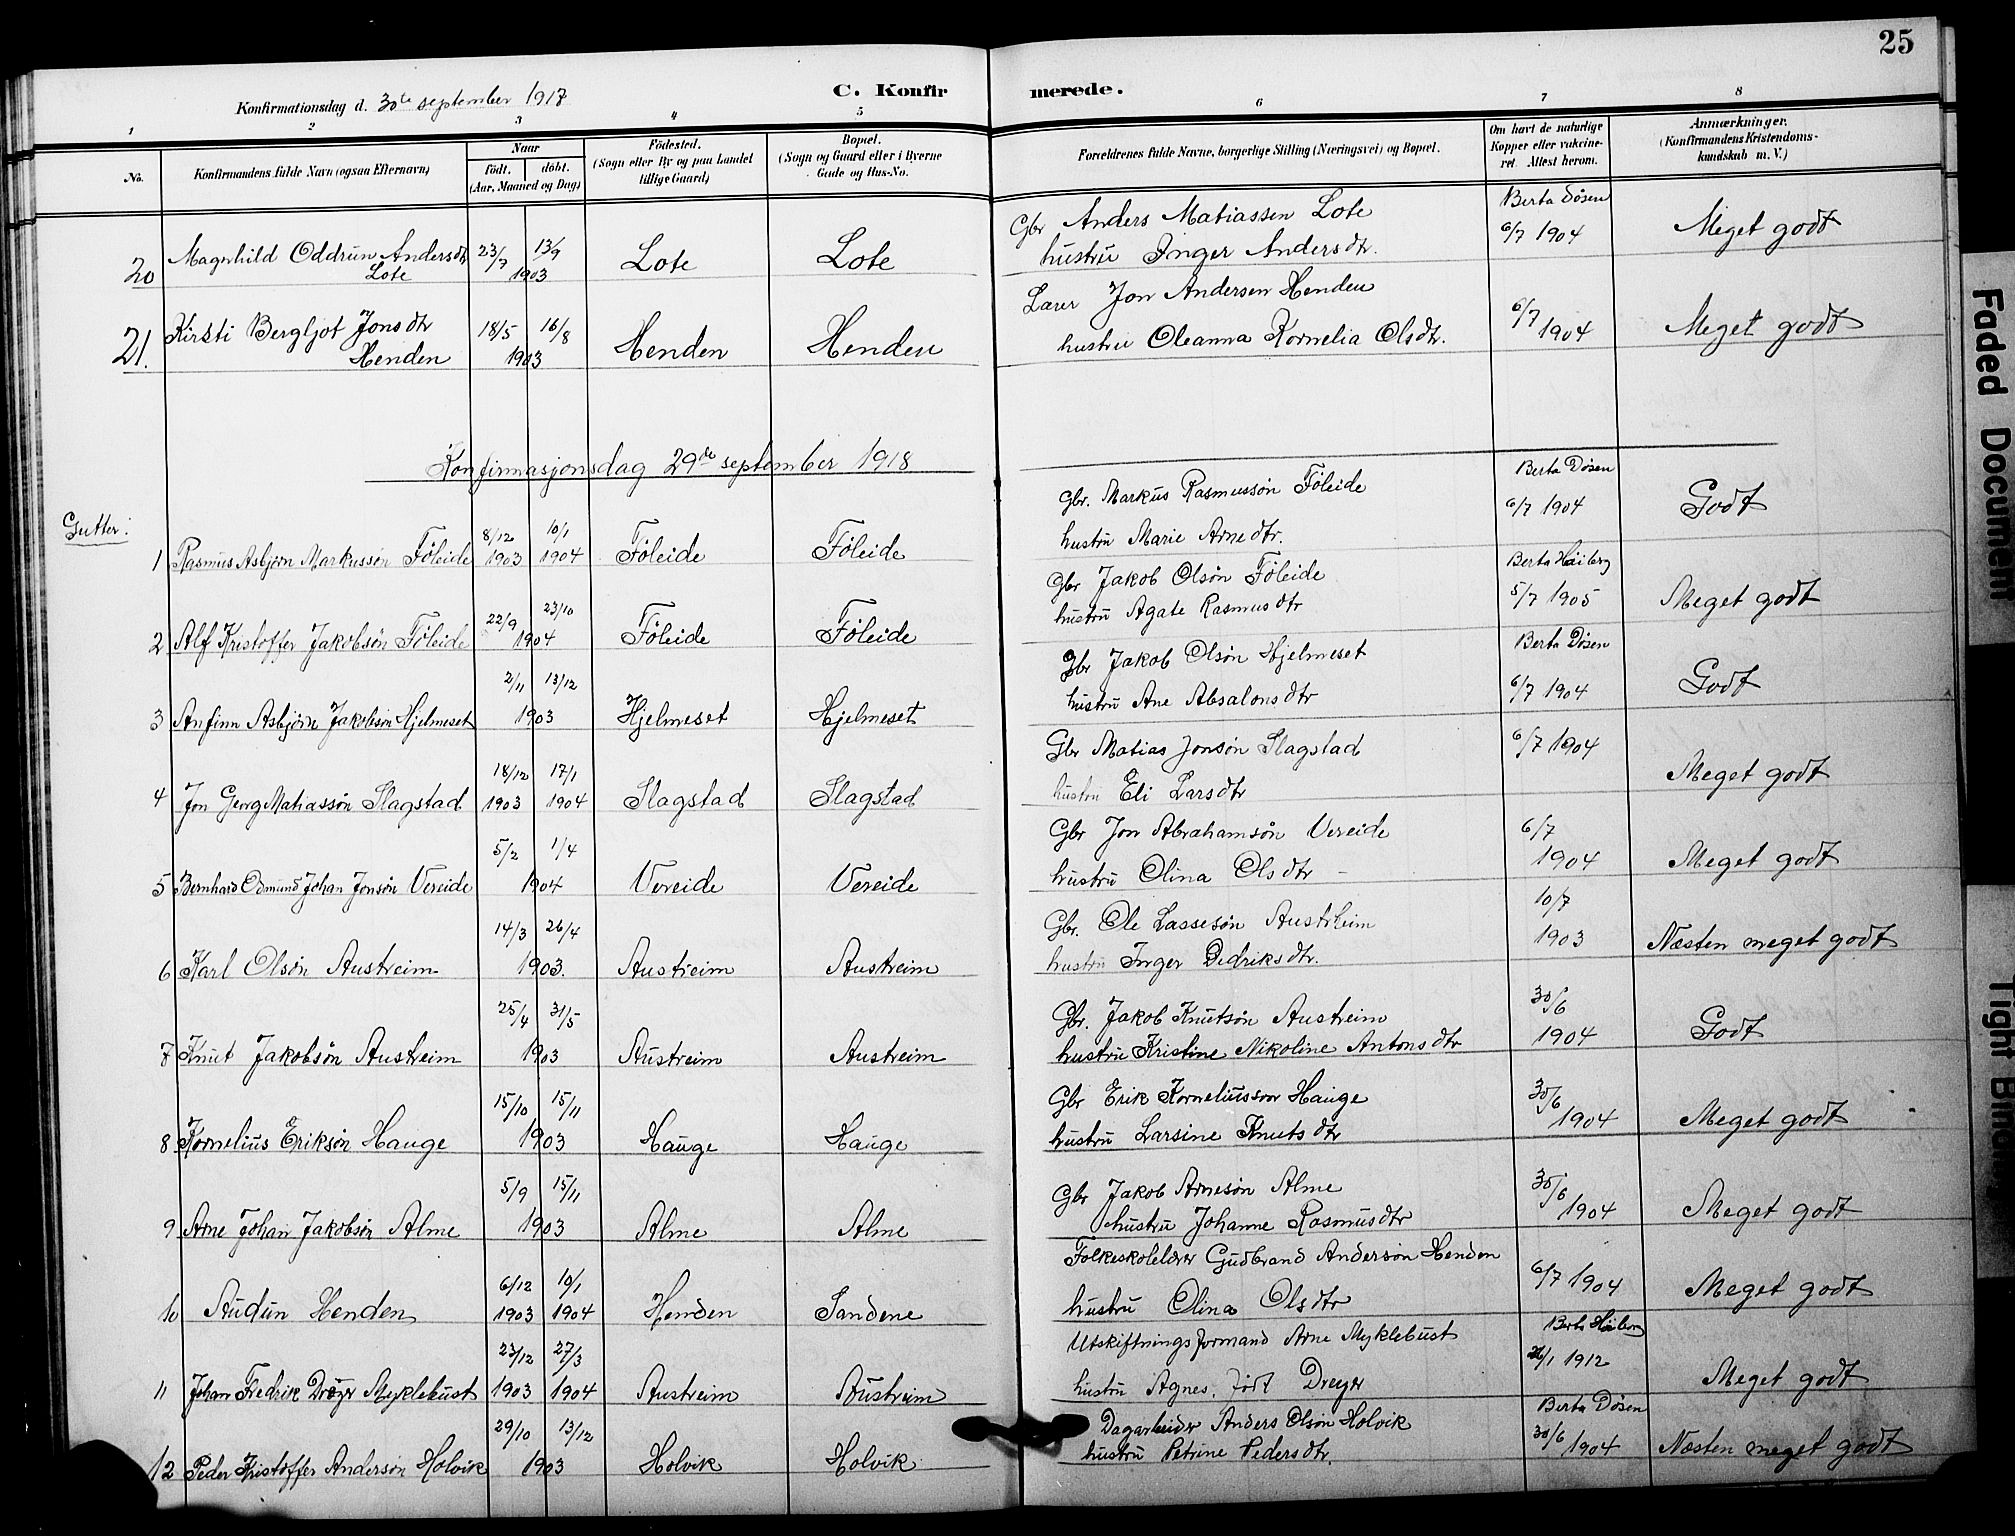 25
Konfirmationsdag d. 30te september 1917
C. Konfirmerede.
1 2 3 4 5 6 7 8
No.
Konfirmandens fulde Navn (ogsaa Efternavn)
Naar
født. døbt.
(Aar, Maaned og Dag)
Fødested.
(Sogn eller By og paa Landet
tillige Gaard)
Bopæl.
(Sogn og Gaard eller i Byerne
Gade og Hus-No.
Forældrenes fulde Navne, borgerlige Stilling (Næringsvei) og Bopæl.
Om havt de naturlige
Kopper eller vakcine-
ret. Attest herom.
Anmærkninger.
(Konfirmandens Kristendoms-
kundskab m. V.)
20 Magnhild Oddrun Andersdtr Lote 23/7 13/9 1903 Lote Lote Gbr Anders Matiassen Lote
hustru Inger Andersdtr. Berta Døsen 6/7 1904 Meget godt
21. Kirsti Bergljot Jonsdtr Henden 18/5 16/8 1903 Henden Henden Lærer Jon Andersen Henden
hustru Oleanna Kornelia Olsdtr. 6/7 1904 Meget godt
Konfirmasjonsdag 29de september 1918
Gutter:
1 Rasmus Asbjørn Markussøn Føleide 8/12 1903 10/1 1904 Føleide Føleide Gbr. Markus Rasmussøn Føleide
hustru Marie Arnedtr. Berta Døsen 6/7 1904 Godt
2 Alf Kristoffer Jakobsøn Føleide 22/9 23/10 1904 Føleide Føleide Gbr Jakob Olsøn Føleide
hustru Agate Rasmusdtr Berta Høiberg 5/7 1905 Meget godt
3 Anfinn Asbjørn Jakobsøn Hjelmeset 2/11 13/12 1903 Hjelmeset Hjelmeset Gbr Jakob Olsøn Hjelmeset
hustru Ane Absalonsdtr Berta Døsen 6/7 1904 Godt
4 Jon Georg Matiassøn Slagstad 18/12 1903 17/1 1904 Slagstad Slagstad Gbr Matias Jonsøn Slagstad
hustru Eli Larsdtr 6/7 1904 Meget godt
5 Bernhard Odmund Johan Jonsøn Vereide 5/2 1/4 1904 Vereide Vereide Gbr Jon Abrahamsøn Vereide
hustru Olina Olsdtr 6/7 1904 Meget godt
6 Karl Olsøn Austreim 14/3 26/4 1903. Austreim Austreim Gbr. Ole Lassesøn Austrheim
hustru Inger Didriksdtr. 10/7 1903 Næsten meget godt
7 Knut Jakobsøn Austreim 25/4 31/5 1903 Austreim Austreim Gbr. Jakob Knutsøn Austreim
hustru Kristine Nikoline Antonsdtr 30/6 1904 Godt
8 Kornelius Eriksøn Hauge 15/10 15/11 1903 Hauge Hauge Gbr Erik Korneliusson Hauge
hustru Larsine Knutsdtr 30/6 1904 Meget godt
9 Arne Johan Jakobsøn Alme 5/9 15/11 1903 Alme Alme Gbr Jakob Arnesøn Alme
hustru Johanne Rasmusdtr 30/6 1904 Meget godt
10 Audun Henden 6/12 1903 10/1 1904 Henden Sandene Folkeskolelærer Gudbrand Andersøn Henden
hustru Olina Olsdtr 6/7 1904 Meget godt
11 Johan Fredrik Dreyer Myklebust 23/12 1903 27/3 1904 Austreim Austreim Utskiftningsformand Arne Myklebust
hustru Agnes, født Dreyer Berta Høiberg /1 1912 Meget godt
12 Peder Kristoffer Andersøn Holvik 29/10 13/12 1903 Holvik Holvik Dagarbeider Anders Olsøn Holvik
hustru Petrine Pedersdtr. Berta Døsen 30/6 1904 Næsten meget godt
Faded Document
Tight Bind